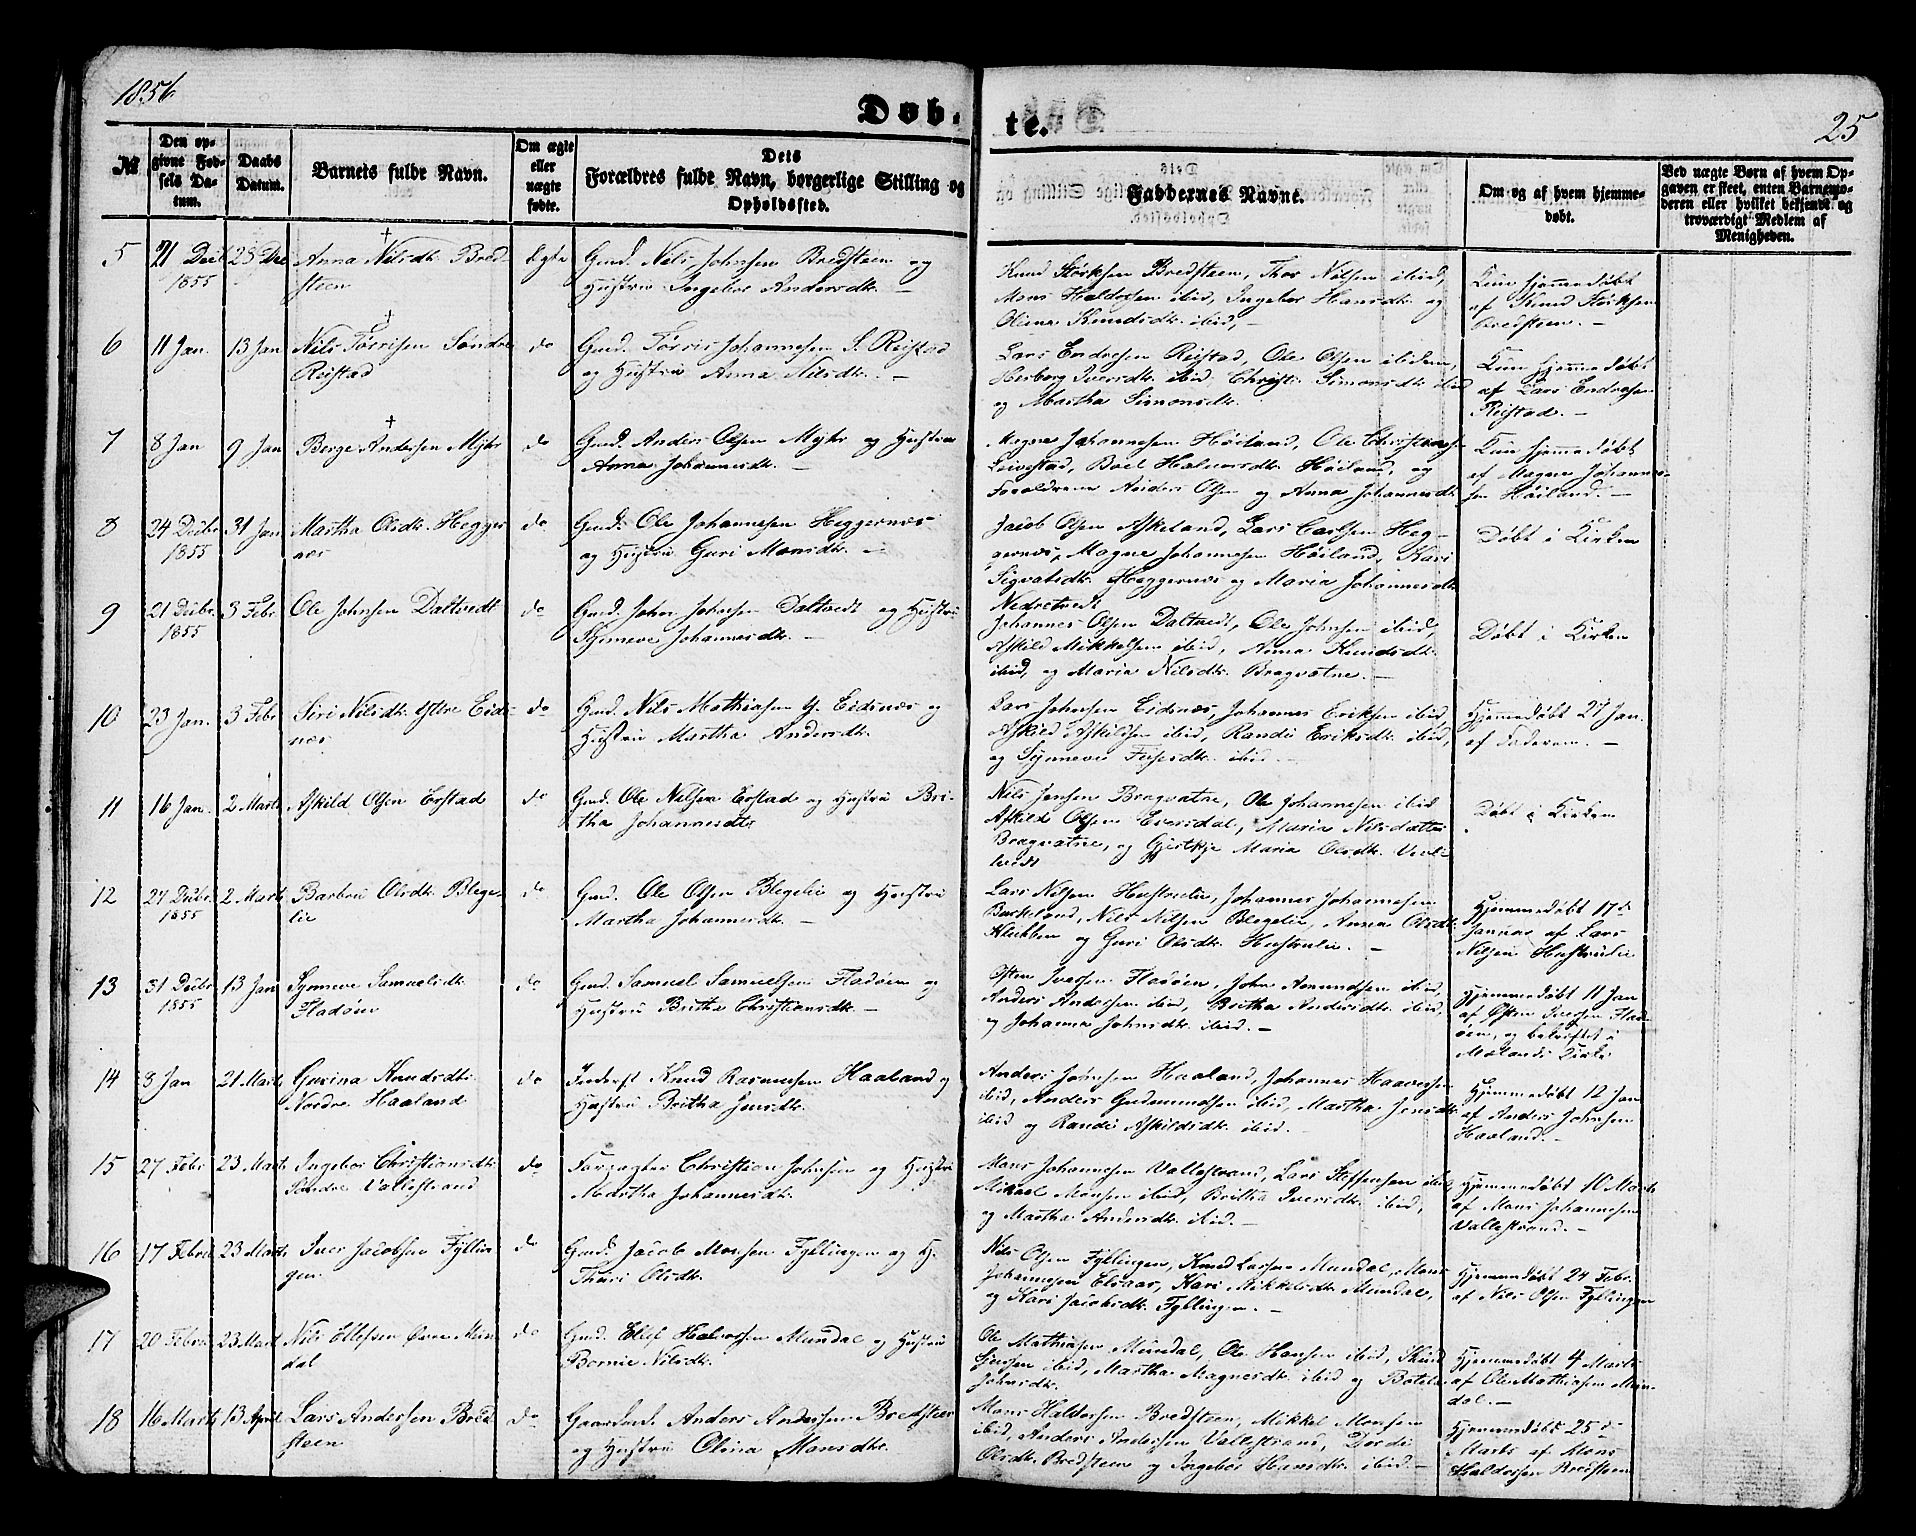 1856
Døb- te.
25
№
Den op-
givne Fød-
sels Da-
tum.
Daabs
Datum.
Barnets fulde Navn.
Om ægte
eller
uægte
fødte.
Dets
Forældres fulde Navn, borgerlige Stilling og
Opholdssted.
Faddernes Navne.
Om og af hvem hjemme-
døbt.
Ved uægte Børn af hvem Op-
gaven er skeet, enten Barnemo-
deren eller hvilket bekjendt og
troværdigt Medlem af
Menigheden.
5 21 Decbr 1855 25 Dec Anna Nilsdtr. Bred-
steen
Egte
Gmd. Nils Johnsen Bredsteen og
Hustru Ingebor Andersdtr. —
Knud Størksen Bredsteen, Thor Nilsen ibid,
Mons Haldorsen ibid, Ingebor Hansdtr. og
Olina Knudsdtr. ibid, —
Kun hjemmedøbt
af Knud Størksen
Bredsteen. —
6 11 Jan. 13 Jan Nils Tørrisen Søndre
Reistad
do
Gmd. Tørris Johannesen S. Reistad
og Hustru Anna Nilsdtr. —
Lars Endresen Reistad, Ole Olsen ibidem,
Herborg Iversdtr. ibid, Christi Simonsdtr. ibid
og Martha Simonsdtr.
Kun hjemmedøbt
af Lars Endresen
Reistad. —
7 8 Jan 9 Jan Børge Andersen Myhr
do
Gmd. Anders Olsen Myhr og Hustru
Anna Johannesdtr. —
Magne Johannesen Høiland, Ole Christensen
Leivestad, Boel Halvorsdtr. Høiland, og
Forældrene Anders Olsen og Anna Johannesdtr.
Kun hjemmedøbt
af Magne Johannes-
sen Høiland. —
8 24 Decbr 1855 31 Jan Martha Olsdtr. Hegger
næs
do
Gmd. Ole Johannesen Heggernæs
og Hustru Guri Monsdtr. —
Jacob Olsen Askeland, Lars Carlsen Heg-
gernæs, Magne Johannesen Høiland, Kari
Sigvatsdtr. Heggernæs og Maria Johannesdtr.
Nedretvedt
Døbt i Kirken
9 21 Decbr. 1855 3 Febr. Ole Johnsen Daltvedt
do
Gmd. John Johnsen Daltvedt og Hustru
Synneve Johannesdtr. —
Johannes Olsen Daltvedt, Ole Johnsen ibid,
Askild Mikkelsen ibid, Anna Knudsdtr.
ibid, og Maria Nilsdtr. Bragvatne. —
Døbt i Kirken
10 23 Jan. 3 Febr Siri Nilsdtr. Østre Eids
næs
do
Gmd. Nils Mathiasen Ø. Eidsnæs og
Hustru Martha Andersdtr.
Lars Johnsen Eidsnæs, Johannes Eriksen ibid,
Askild Askildsen ibid, Randi Eriksdtr. ibid,
og Synneve ibid. —
Hjemmedøbt 27 Jan.
af Faderen. —
11 16 Jan. 2 Marts Askild Olsen Erstad
do
Gmd. Ole Nilsen Erstad og Hustru Bri-
tha Johannesdtr
Nils Jensen Bragvatne, Ole Johannesen ibid
Askild Olsen Eversdal, Maria Nilsdatter
Bragvatne, og Maria Olsdtr.
Døbt i Kirken
12 27 Decbr. 1855 2 Marts Barbru Olsdtr. Blege-
lie
do
Gmd. Ole Olsen Blegelie og Hustru
Martha Johannesdtr. —
Lars Nilsen Hustrulie, Johannes Johannesen
Birkeland, Nils Nilsen Blegelie, Anna Olsdtr.
Klubben og Guri Olsdtr. Hustrulie. —
Hjemmedøbt 17de
Januar af Lars
Nilsen Hustrulie
13 31 Decbr 1855 13 Jan Synneve Samuelsdtr.
Fladøen
do
Gmd. Samuel Samuelsen Fladøen og
Hustru Britha Christiansdtr. —
Østen Iversen Fladøen, John Amundsen ibid,
Anders Andersen ibid, Britha Andersdtr. ibid,
og Johanna Johnsdtr. ibid. —
Hjemmedøbt 11 Jan
af Østen Iversen Flad-
øen, og bekræftet i
Mælands Kirke
14 8 Jan 21 Marts Gurina Knudsdtr.
Nordre Haaland
do
Inderst Knud Rasmussen Haaland og
Hustru Britha Jensdtr.
Anders Johnsen Haaland, Johannes Haaversen
ibid, Anders Gudmundsen ibid, Martha Jensdtr.
ibid og Randi Askildsdtr. ibid. —
Hjemmedøbt 12 Jan
af Anders Johnsen
Haaland. —
15 27 Febr 23 Marts Ingebor Christiansdtr.
Søndre Vallestrand
do
Forpagter Christian Johnsen og Hustru
Martha Johannesdtr.
Mons Johannesen Vallestrand, Lars Steffensen ibid,
Mikael Monsen ibid, Britha Iversdtr. ibid,
og Martha Andersdtr. ibid. —
Hjemmedøbt 10 Marts
af Mons Johannesen
Vallestrand. —
16 17 Febru 23 Marts Iver Jacobsen Fyllin
gen
do
Gmd. Jacob Monsen Fyllingen og H.
Thuri Olsdtr.
Nils Olsen Fyllingen, Knud Larsen Mundal, Mons
Johannesen Elvaas, Kari Mikkelsdtr. Mundal,
og Kari Jacobsdtr. Fyllingen. —
Hjemmedøbt 24 Febr.
af Nils Olsen Fyllingen
17 20 Febru 23 Marts Nils Ellefsen Øvre Mun
dal
do
Gmd. Ellef Halvorsen Mundal og Hustru
Bornie Nilsdtr.
Ole Mathiasen Mundal, Ole Hansen ibid, Knud
ibid, Martha Magnesdtr. ibid og Botele
Johnsdtr.
Hjemmedøbt 4 Marts
af Ole Mathiasen Mun-
dal. —
18 16 Marts 13 April Lars Andersen Bred
steen
do
Gaardmd. Anders Andersen Bredsteen
og Hustru Olina Monsdtr.
Mons Haldorsen Bredsteen, Mikkel Monsen
ibid, Anders Andersen Vallestrand, Dordi
Olsdtr. Bredsteen og Ingebor Hansdtr. ibid. —
Hjemmedøbt 25de
Marts af Mons
Haldorsen Bredsteen